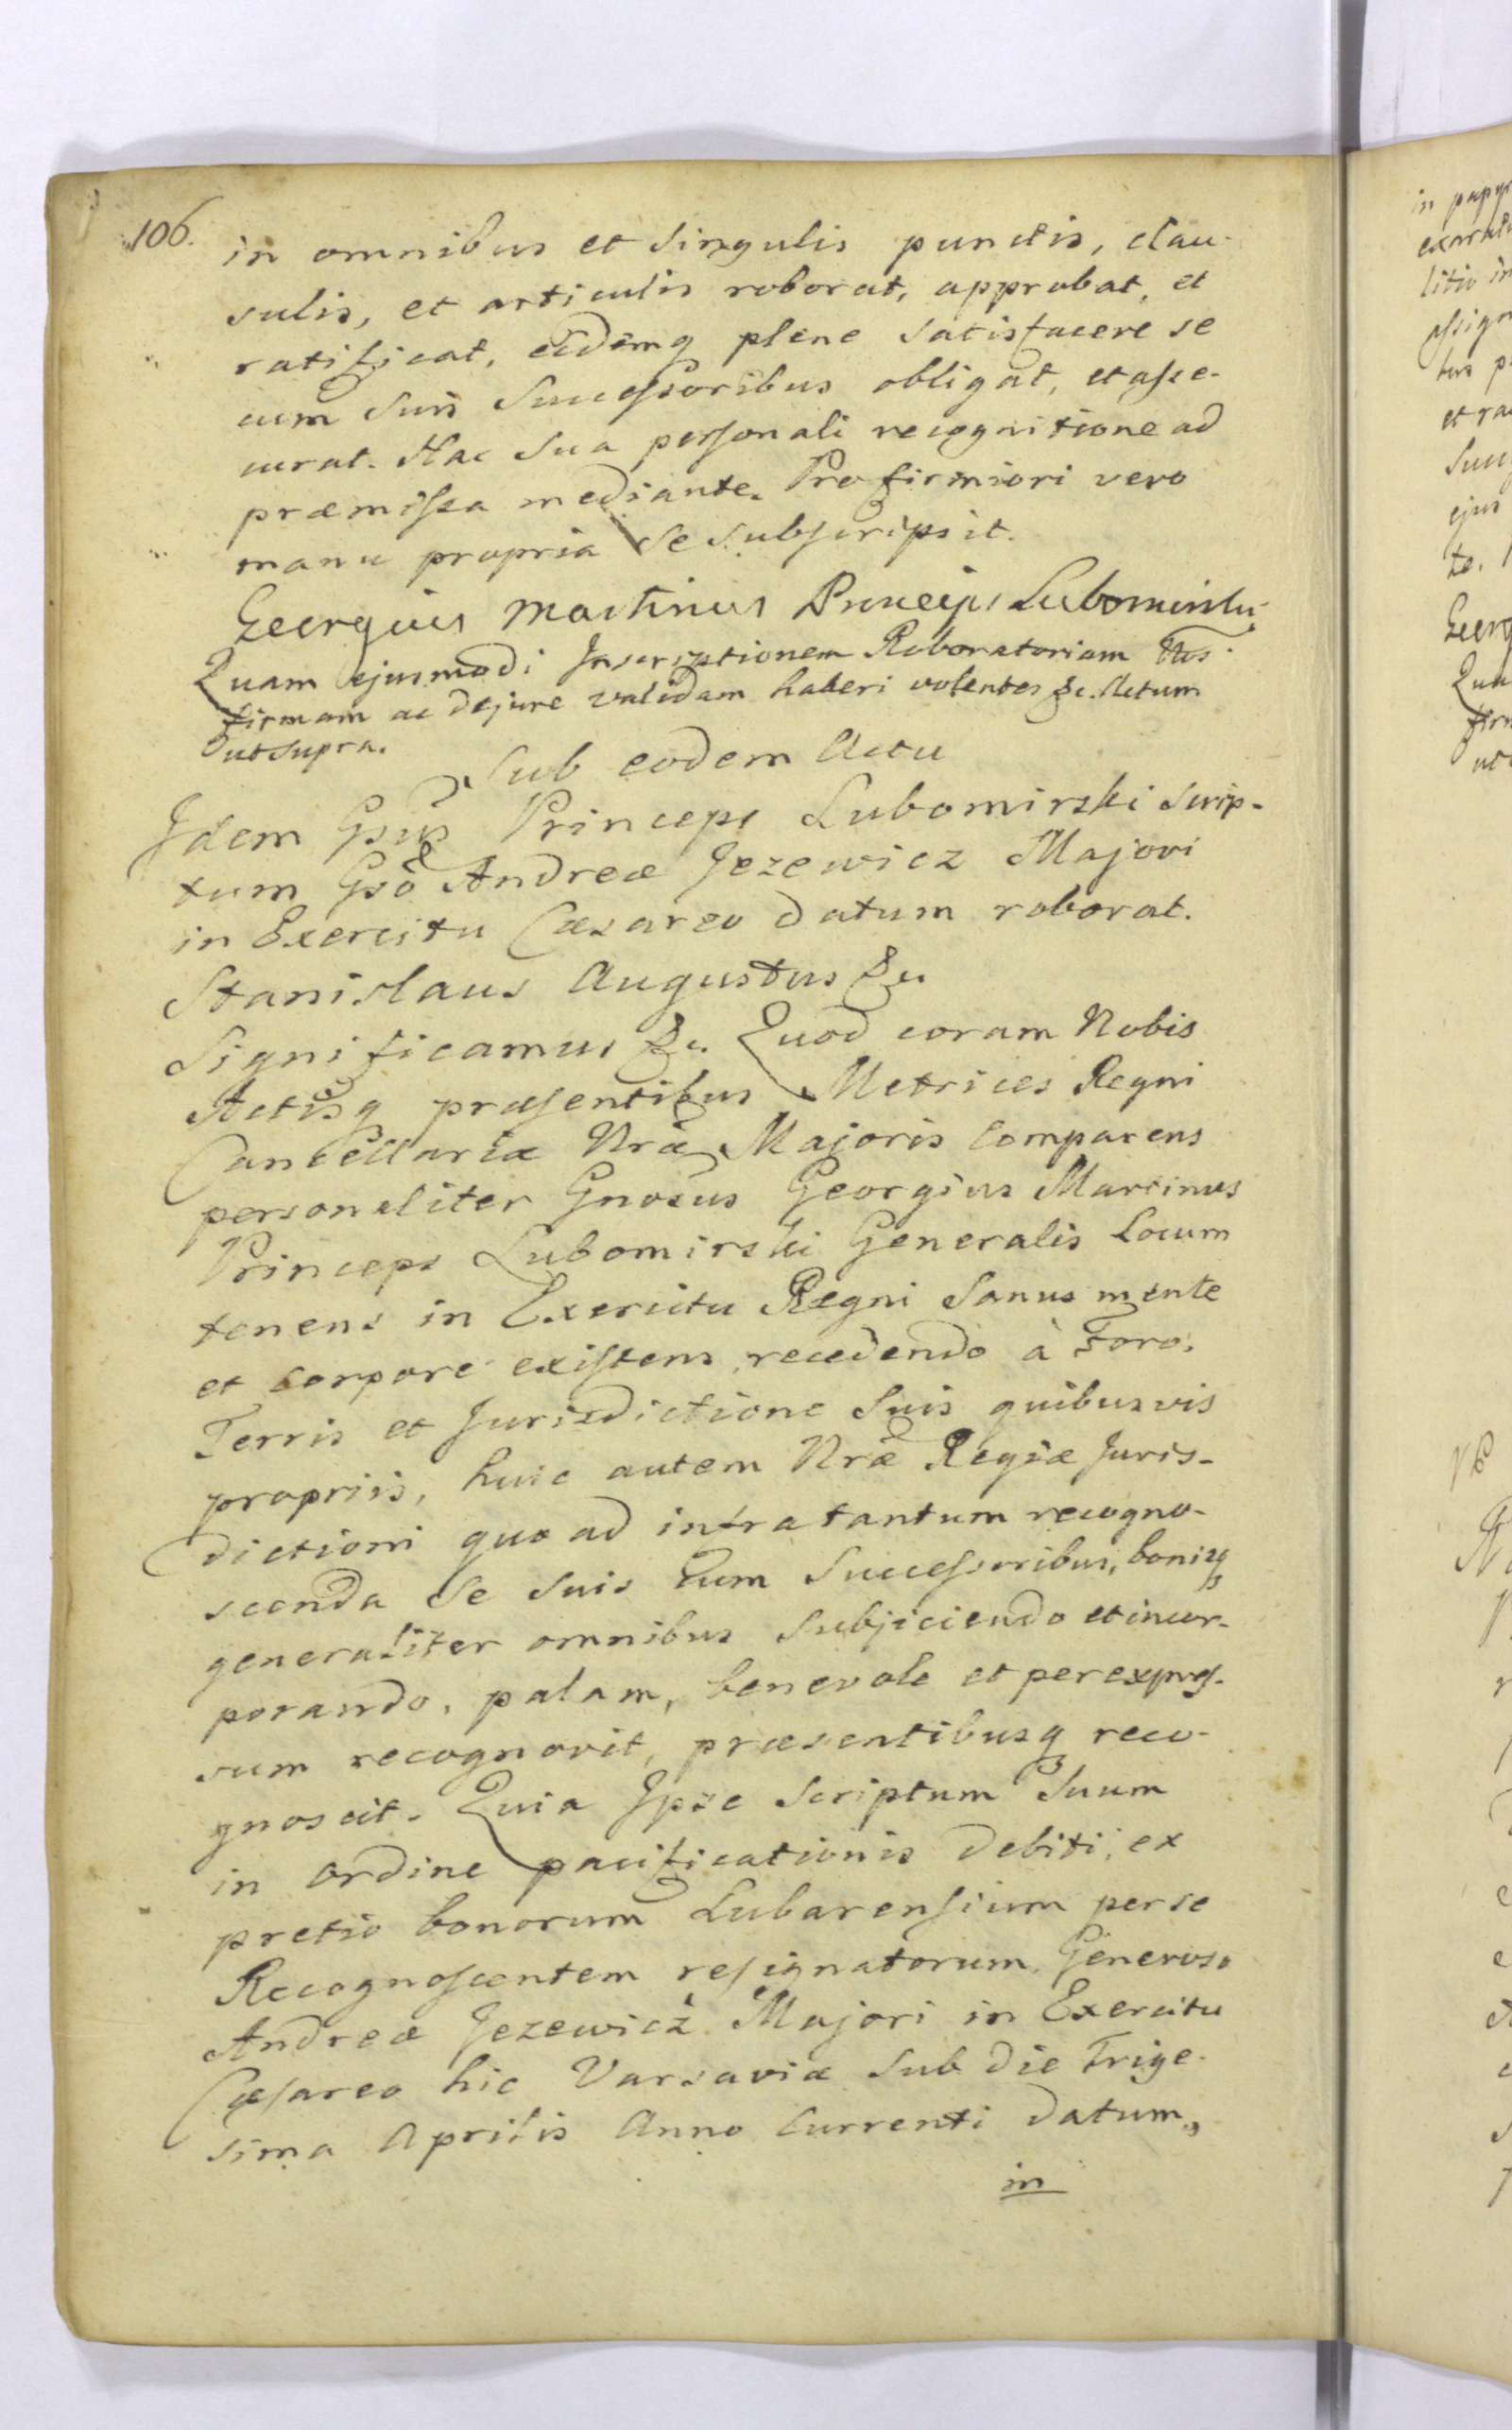 106.
in omnibus et Singulis punctis, clau-
sulis, et articulis roborat, approbat, et
ratificat, eidemq plene Satisfacere se
cum Suis Successoribus obligat, et asse-
curat. Hac Sua personali recognitione ad
præmissa mediante. Pro firmiori vero
manu propria Se Subscripsit.
Georgius Martinus Princeps Lubomirski
Quam ejusmodi Inscriptionem Roboratoriam Nos
firmam ac dejure validam haberi volentes &c. Actum
ut Supra.
Sub eodem Actu
Idem Gsus Princeps Lubomirski Scrip-
tum Gso Andreæ Jezewicz Majori
in Exercitu Cæsareo datum roborat.
Stanislaus Augustus &c.
Significamus &c. Quod coram Nobis
Actisq præsentibus Metrices Regni
Cancellariæ Nræ Majoris Comparens
personaliter Gnosus Georgius Martinus
Princeps Lubomirski Generalis Locum
tenens in Exercitu Regni Sanus mente
et corpore existens recedendo à Foro,
Terris et Jurisdictione Suis quibusvis
propriis, huic autem Nræ Regiæ Juris-
dictioni quo ad infra tantum recogno-
scenda Se Suis cum Successoribus, bonisq
generaliter omnibus Subjiciendo et incor-
porando, palam, benevole et per expres-
sum recognovit, præsentibusq reco-
gnoscit. Quia Ipse Scriptum Suum
in ordine pacificationis debiti, ex
pretio bonorum Lubarensium per se
Recognoscentem resignatorum, Generoso
Andreæ Jezewicz Majori in Exercitu
Cæsareo hic Varsaviæ Sub die Trige-
sima Aprilis Anno Currenti datum,
in